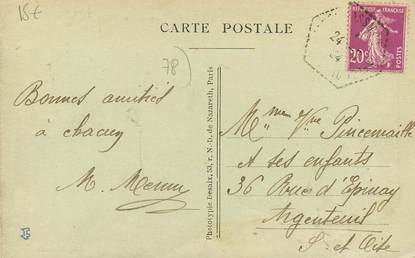 15€
CARTE POSTALE
REPUBLIQUE FRANÇAISE
20c
POSTES
24
78
Bonnes amitiés
à chacun
M.
Phototypie Desaix, 33, r. N.-D. de Nazareth, Paris
Mme Vve Pincemaille
et ses enfants
36 Rue d'Epinay
Argenteuil
S. et Oise